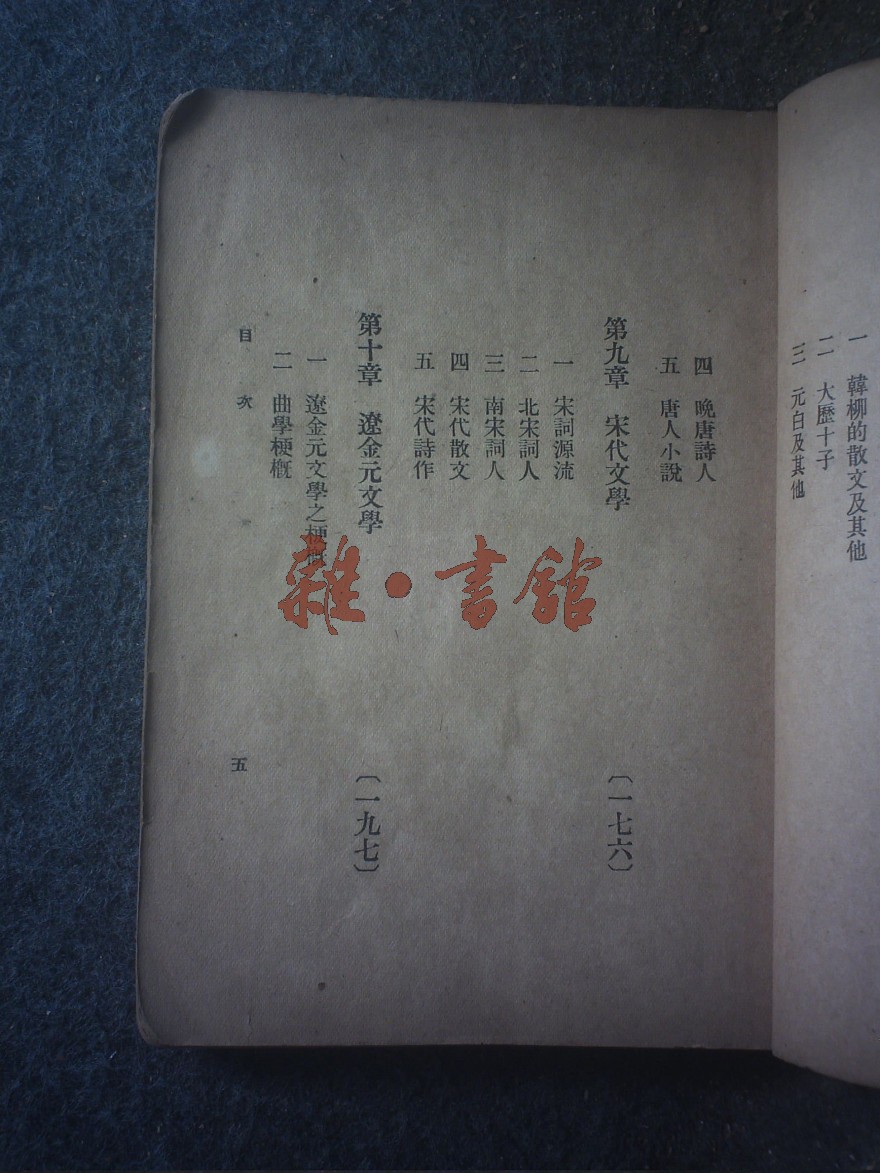 一　韓柳的散文及其他
二　大歷十子
三　元白及其他
四　晚唐詩人
五　唐人小說
第九章　宋代文學　〔一七六〕
一　宋詞源流
二　北宋詞人
三　南宋詞人
四　宋代散文
五　宋代詩作
第十章　遼金元文學　〔一九七〕
一　遼金元文學之梗概
二　曲學梗概
目次　五
雜·書館